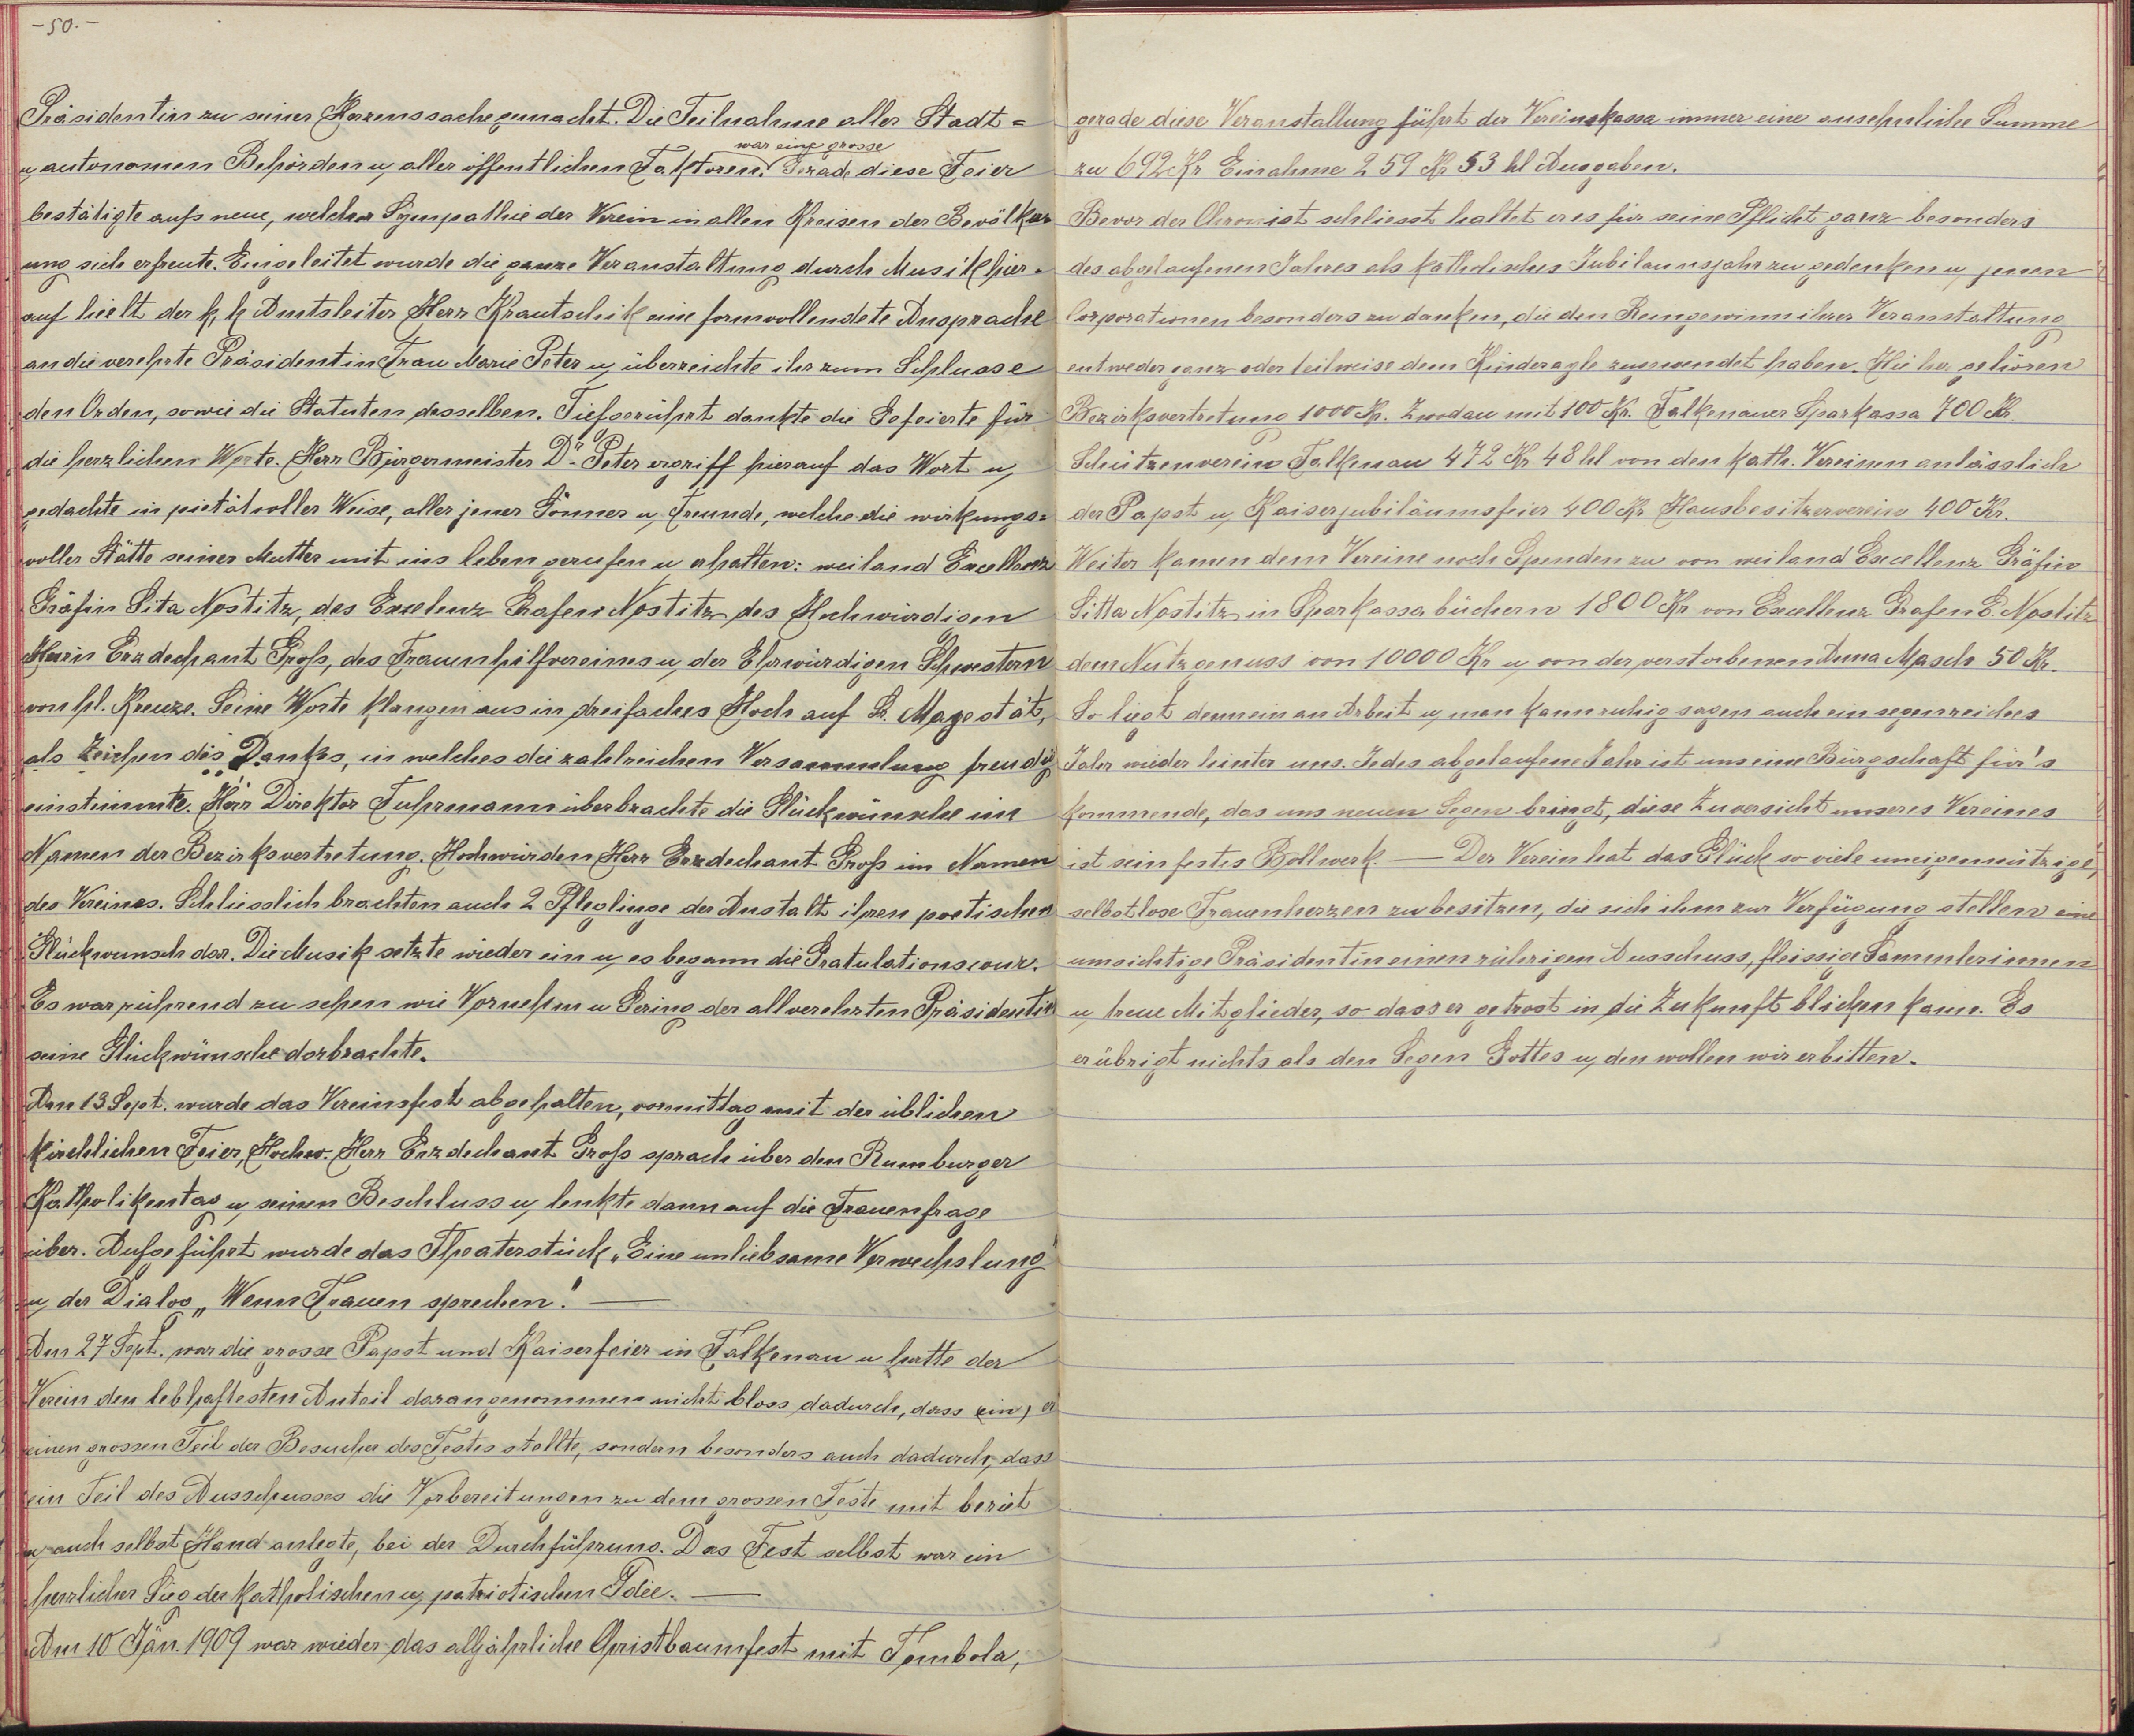 -50.-
Präsidentin zu seiner Herzenssache gemacht. Die Teilnahme aller Stadt=
war eine grosse
u, autonomen Behörden u, aller öffentlichen Faktoren. Gerade diese Feier
bestätigte aufs neue, welcher Sympathie der Verein in allen Kreisen der Bevölker
ung sich erfreute. Eingeleitet wurde die ganze Veranstaltung durch Musik hier-
auf hielt der k, k Amtsleiter Herr Krautschik eine formvollendete Ansprache
an die verehrte Präsidentin Frau Marie Peter u, überreichte ihr zum Schlusse
den Orden, sowie die Statuten desselben. Tiefgerührt dankte die Gefeierte für
die herzlichen Worte. Herr Bürgermeister Dr. Peter ergriff hierauf das Wort u,
gedachte in pietätvoller Weise, aller jener Gönner u, Freunde, welche die wirkungs=
voller Stätte seiner Mutter mit ins leben gerufen u erhalten: weiland Excellenz
Gräfin Sita Nostitz, des Exelenz Grafen Nostitz des Hochwürdigen
Herrn Erzdechant Groß, des Frauenhilfvereines u, der Ehrwürdigen Schwestern
von hl. Kreuze. Seine Worte klangen aus in dreifaches Hoch auf Sr. Magestät,
als Zeichen des Dankes, in welches die zahlreichen Versammlung freudig
einstimmte. Herr Direktor Fuhrmann überbrachte die Glückwünsche im
Namen der Bezirksvertretung. Hochwürden Herr Erzdechant Groß im Namen
des Vereines. Schliesslich brachten auch 2 Pfleglinge der Anstalt ihren poetischen
Glückwunsch dar. Die Musik setzte wieder ein u, es begann die Gratulationscour.
Es war rührend zu sehen wie Vornehm u Gering der allverehrten Präsidentin
seine Glückwünsche darbrachte.
Am 13 Sept. wurde das Vereinsfest abgehalten, vormittag mit der üblichen
kirchlichen Feier, Hochw. Herr Erzdechant Groß sprach über den Rumburger
Katholikentag u, seinen Beschluss u, lenkte dann auf die Frauenfrage
über. Aufgeführt wurde das Theaterstück „Eine unliebsame Verwechslung"
u, der Dialog „Wenn Frauen sprechen." —
Am 27 Sept. war die grosse Papst und Kaiserfeier in Falkenau u hatte der
Verein den lebhaftesten Anteil daran genommen nicht bloss dadurch, dass ein, er
einen grossen Teil der Besucher des Festes stellte, sondern besonders auch dadurch, dass
ein Teil des Ausschusses die Vorbereitungen zu dem grossen Feste mit beriet
u, auch selbst Hand anlegte, bei der Durchführung. Das Fest selbst war ein
herrlicher Sieg der katholischen u, patriotischen Idee. —
Am 10 Jän. 1909 war wieder das alljährliche Christbaumfest mit Tombola,
gerade diese Veranstaltung führt der Vereinskassa immer eine ansehnliche Summe
zu 692 Kr Einahme 259 Kr 53 hl Ausgaben.
Bevor der Chronist schliesst haltet er es für seine Pflicht ganz besonders
des abgelaufenen Jahres als katholisches Jubilaumsjahr zu gedenken u, jenen
Corporationen besonders zu danken, die den Reingewinn ihrer Veranstaltung
entweder ganz oder teilweise dem Kinderasyle zugewendet haben. Hie her gehören
Bezirksvertretung 1000 Kr. Zwodau mit 100 Kr. Falkenauer Sparkassa 700 Kr.
Schützenverein Falkenau 472 Kr 48 hl von den kath. Vereinen anlässlich
der Papst u, Kaiserjubiläumsfeier 400 Kr Hausbesitzerverein 400 Kr.
Weiter kamen dem Vereine noch Spenden zu von weiland Excellenz Gräfin
Sitta Nostitz in Sparkassabüchern 1800 Kr von Excellenz Grafen E. Nostitz
dem Nutzgenuss von 10000 Kr u, von der verstorbenen Anna Masch 50 Kr.
So liegt denn ein an Arbeit u, man kann ruhig sagen auch ein segenreiches
Jahr wieder hinter uns. Jedes abgelaufene Jahr ist uns eine Bürgschaft für's
kommende, das uns neuen Segen bringt, diese Zuversicht unseres Vereines
ist sein festes Bollwerk. — Der Verein hat das Glück so viele uneigennützige,
selbstlose Frauenherzen zu besitzen, die sich ihm zur Verfügung stellen eine
umsichtige Präsidentin einen rührigen Ausschuss, fleissige Sammlerinnen
u, treue Mitglieder, so dass er getrost in die Zukunft blicken kann. Es
erübrigt nichts als den Segen Gottes u, den wollen wir erbitten.